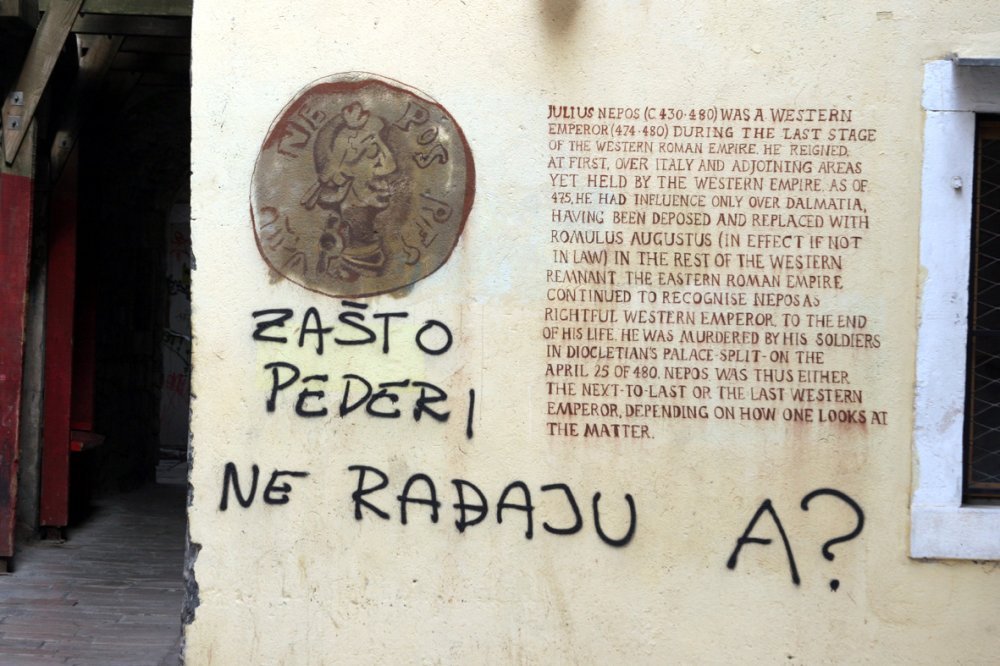 NEPOS PF
JULIUS NEPOS (C 430-480) WAS A WESTERN
EMPEROR (474-480) DURING THE LAST STAGE
OF THE WESTERN ROMAN EMPIRE. HE REIGNED,
AT FIRST, OVER ITALY AND ADJOINING AREAS
YET HELD BY THE WESTERN EMPIRE. AS OF
475, HE HAD INFLUENCE ONLY OVER DALMATIA,
HAVING BEEN DEPOSED AND REPLACED WITH
ROMULUS AUGUSTUS (IN EFFECT IF NOT
IN LAW) IN THE REST OF THE WESTERN
REMNANT. THE EASTERN ROMAN EMPIRE
CONTINUED TO RECOGNISE NEPOS AS
RIGHTFUL WESTERN EMPEROR, TO THE END
OF HIS LIFE. HE WAS MURDERED BY HIS SOLDIERS
IN DIOCLETIAN'S PALACE-SPLIT- ON THE
APRIL 25 OF 480. NEPOS WAS THUS EITHER
THE NEXT-TO-LAST OR THE LAST WESTERN
EMPEROR, DEPENDING ON HOW ONE LOOKS AT
THE MATTER.
ZAŠTO
PEDERI
NE RAĐAJU A?